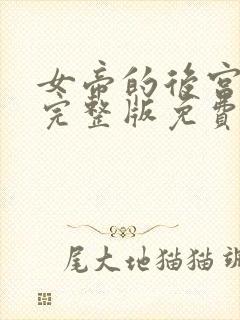 女帝的后宫
完整版免費
尾大地猫猫